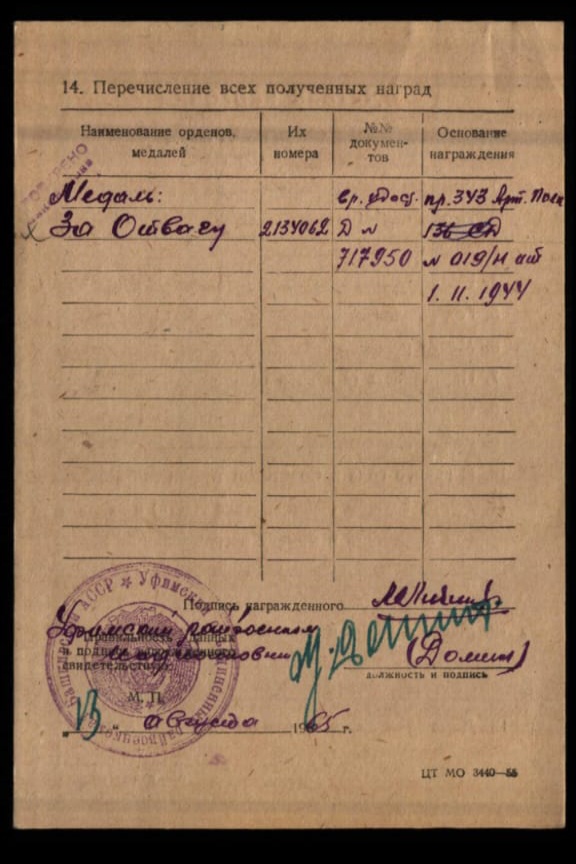 14. Перечисление всех полученных наград
Наименование орденов, медалей
Их номера
№№ документов
Основание награждения
Медаль: вр. удост. пр. 343 Арт. Полк
За Отвагу 2134062 Д № 136 СД
717950 № 019/н от
1. 11. 1944
Подпись награжденного
Уфимский райвоенком
Правильность данных
и подписи награжденного
свидетельствую:
(Домин)
должность и подпись
М. П.
"13" августа 1965 г.
ЦТ МО 3440—55